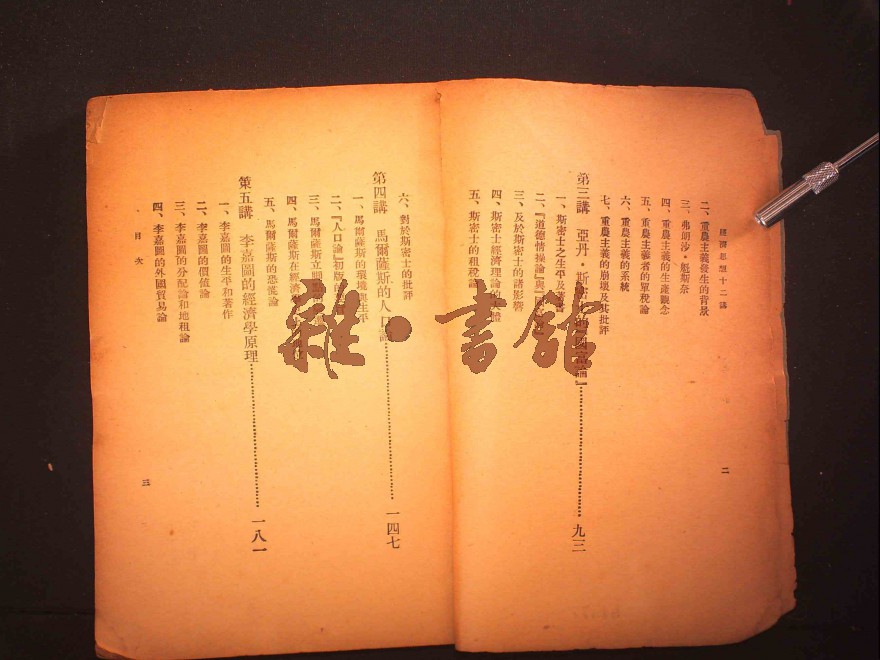 經濟思想十二講
二、重農主義發生的背景
三、弗朗沙·魁斯奈
四、重農主義的生產觀念
五、重農主義者的單稅論
六、重農主義的系統
七、重農主義的崩壞及其批評
第三講 亞丹·斯密士的『國富論』……九三
一、斯密士之生平及著書
二、『道德情操論』與『國富論』
三、及於斯密士的諸影響
四、斯密士經濟理論的大體
五、斯密士的租稅論
二
六、對於斯密士的批評
第四講 馬爾薩斯的人口論……一四七
一、馬爾薩斯的環境與生平
二、『人口論』初版
三、馬爾薩斯立
四、馬爾薩斯在經濟
五、馬爾薩斯的恐慌論
第五講 李嘉圖的經濟學原理……一八一
一、李嘉圖的生平和著作
二、李嘉圖的價值論
三、李嘉圖的分配論和地租論
四、李嘉圖的外國貿易論
目次
三
雜·書館